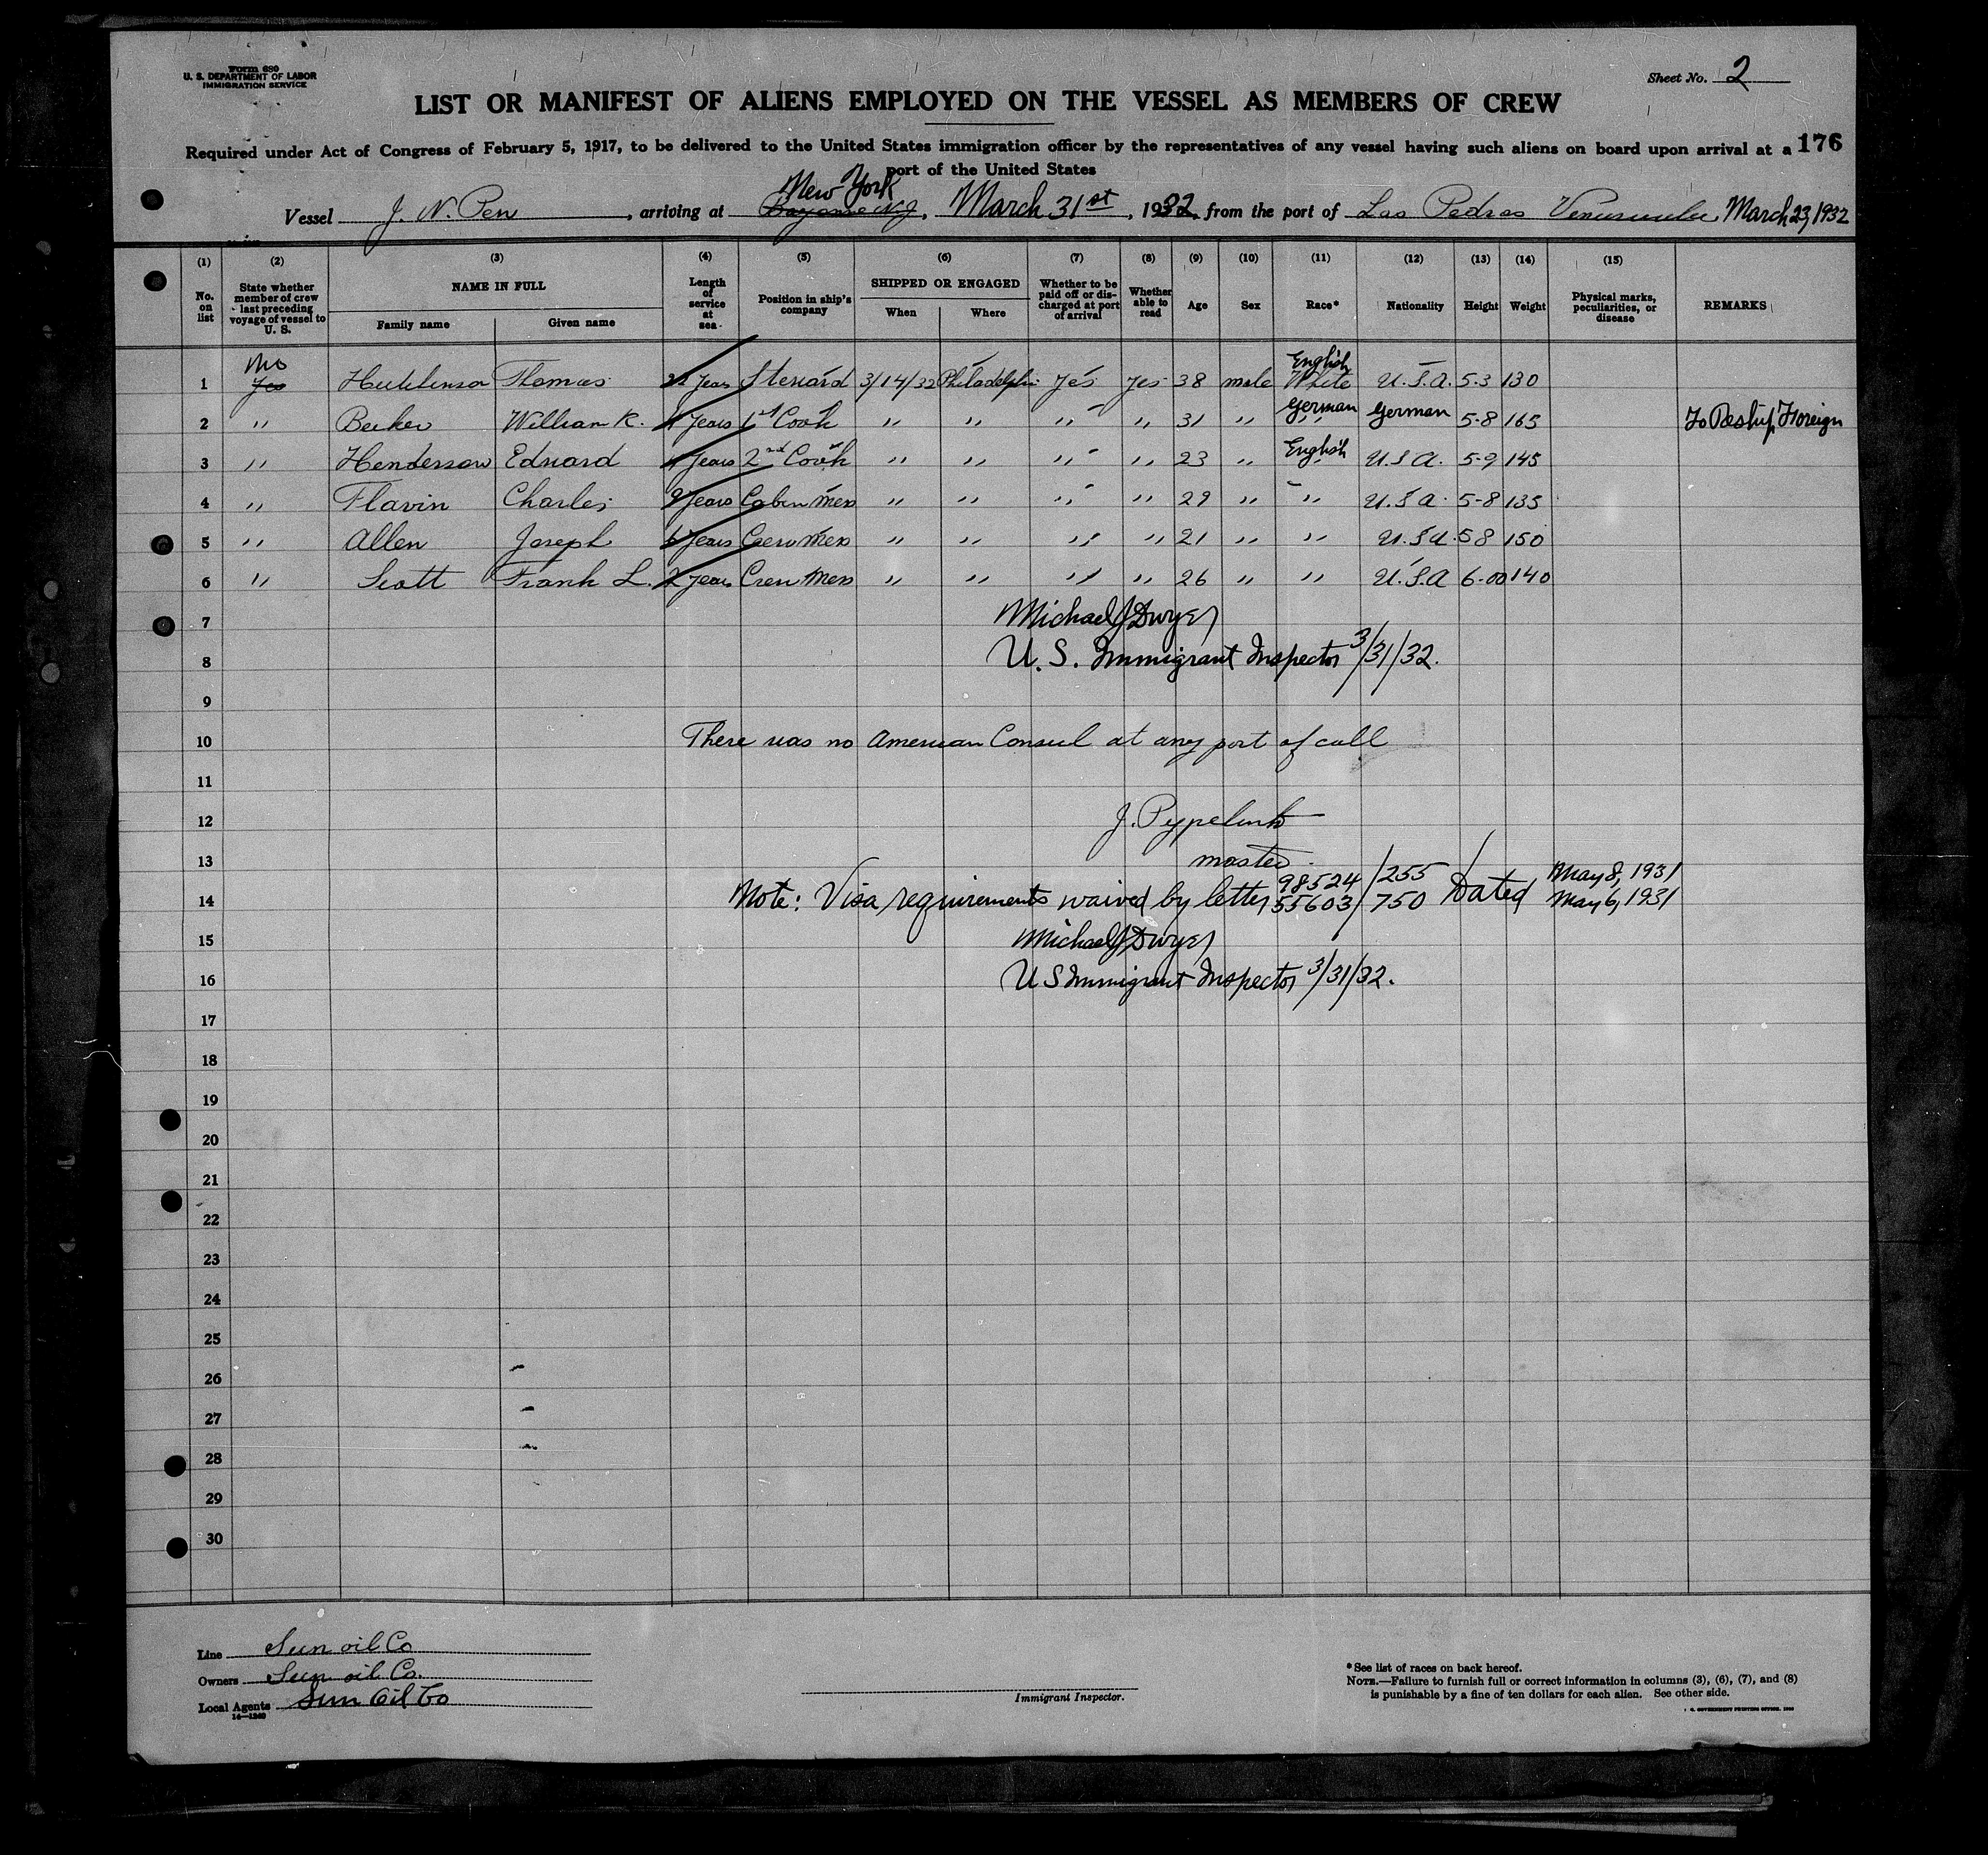 Form 689
U. S. DEPARTMENT OF LABOR
IMMIGRATION SERVICE
Sheet No. 2
LIST OR MANIFEST OF ALIENS EMPLOYED ON THE VESSEL AS MEMBERS OF CREW
Required under Act of Congress of February 5, 1917, to be delivered to the United States immigration officer by the representatives of any vessel having such aliens on board upon arrival at a 176
port of the United States
New York
Vessel J. N. Pew, arriving at Bayonne NJ, March 31st, 1932, from the port of Las Pedras March 23, 1932
(1) (2) (3) (4) (5) (6) (7) (8) (9) (10) (11) (12) (13) (14) (15)
No. on list State whether member of crew last preceding voyage of vessel to U. S. NAME IN FULL Family name Given name Length of service at sea Position in ship's company SHIPPED OR ENGAGED When Where Whether to be paid off or discharged at port of arrival Whether able to read Age Sex Race* Nationality Height Weight Physical marks, peculiarities, or disease REMARKS
No English
1 Yes Hutchinson Thomas years Steward 3/14/32 Philadelphia Yes yes 38 male White U.S.A. 5-3 130
2 " Becker William K. years 1st Cook " " " " 31 " German German 5-8 165 To Reship Foreign
3 " Henderson Edward 4 years 2nd Cook " " " " 23 " English U.S.A. 5-9 145
4 " Flavin Charles 9 years Cabin Mess " " " " 29 " " U.S.A. 5-8 135
5 " Allen Joseph 6 years Crew Mess " " " " 21 " " U.S.A. 5-8 150
6 " Scott Frank L. 2 years Crew Mess " " " " 26 " " U.S.A 6-00 140
7 Michael J Dwyer
8 U.S. Immigrant Inspector 3/31/32.
9
10 There was no American Consul at any port of call
11
12 J. Pypelink
13 master
14 Note: Visa requirements waived by letter 98524/255 55603/750 Dated May 8, 1931 May 6, 1931
15 Michael J Dwyer
16 U S Immigrant Inspector 3/31/32.
17
18
19
20
21
22
23
24
25
26
27
28
29
30
Line Sun oil Co
Owners Sun oil Co.
Local Agents Sun Oil Co
14—1240
Immigrant Inspector.
*See list of races on back hereof.
NOTE.—Failure to furnish full or correct information in columns (3), (6), (7), and (8)
is punishable by a fine of ten dollars for each alien. See other side.
GOVERNMENT PRINTING OFFICE